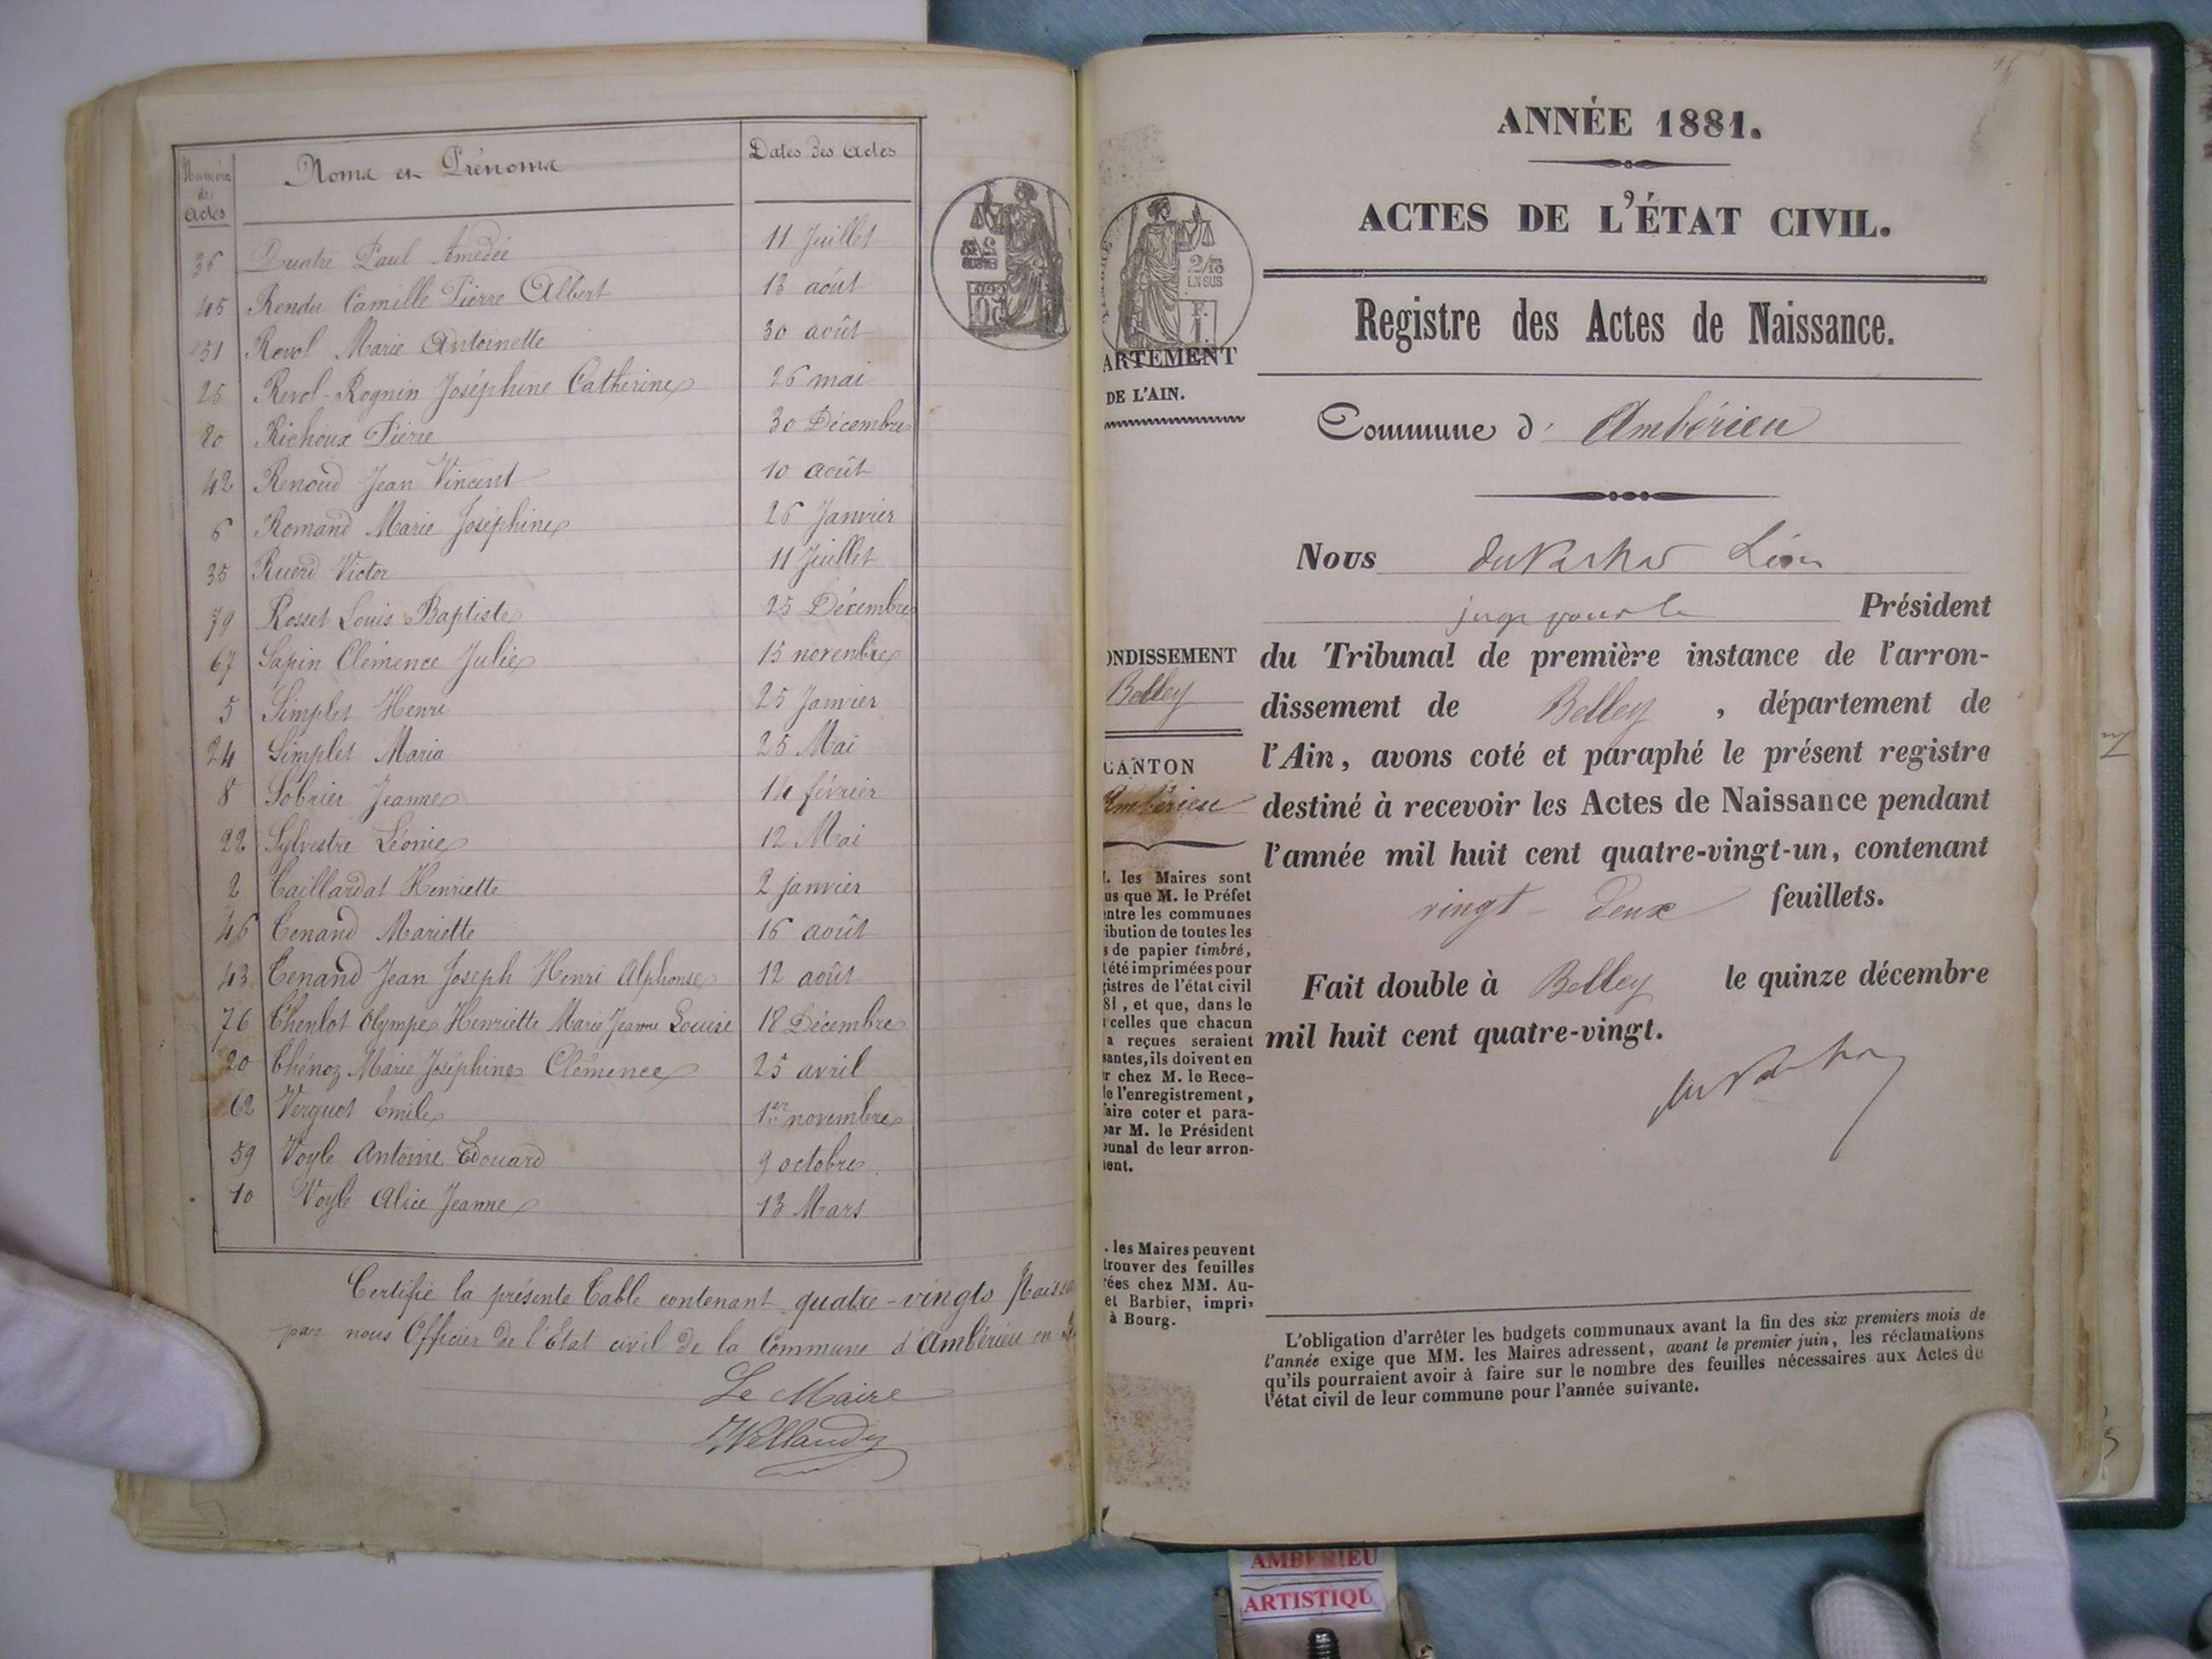 Numéro des Actes Noms et Prénoms Dates des Actes
36 Quatre Paul Amédée 11 Juillet
45 Rendu Camille Pierre Albert 13 août
51 Revol Marie Antoinette 30 août
25 Revol-Rognin Joséphine Catherine 26 mai
80 Richoux Pierre 30 Décembre
42 Renoud Jean Vincent 10 août
6 Romand Marie Joséphine 26 Janvier
35 Ruerd Victor 11 Juillet
79 Rosset Louis Baptiste 25 Décembre
67 Sapin Clémence Julie 15 novembre
5 Simplet Henri 25 Janvier
24 Simplet Maria 25 Mai
8 Sobrier Jeanne 14 février
22 Sylvestre Léonie 12 Mai
2 Taillardat Henriette 2 janvier
46 Tenand Mariette 16 août
43 Tenand Jean Joseph Henri Alphonse 12 août
76 Olympe Henriette Marie Jeanne Louise 18 Décembre
20 Thénoz Marie Joséphine Clémence 25 avril
62 Verguet Emile 1er novembre
59 Voyle Antoine Edouard 9 octobre
10 Voyle Alice Jeanne 13 Mars
Certifié la présente Table contenant quatre-vingts Naiss
par nous Officier de l'Etat civil de la Commune d'Ambérieu en
Le Maire
2/10
EN SUS
F.
1.
ARTEMENT
DE L'AIN.
ONDISSEMENT
Belley
CANTON
Ambérieu
. les Maires sont
us que M. le Préfet
entre les communes
ribution de toutes les
s de papier timbré,
t été imprimées pour
gistres de l'état civil
81, et que, dans le
celles que chacun
a reçues seraient
santes, ils doivent en
r chez M. le Rece-
le l'enregistrement,
faire coter et para-
par M. le Président
bunal de leur arron-
ent.
. les Maires peuvent
trouver des feuilles
rées chez MM. Au-
et Barbier, impri-
à Bourg.
ANNÉE 1881.
ACTES DE L'ÉTAT CIVIL.
Registre des Actes de Naissance.
Commune d' Ambérieu
Nous Léon
juge pour le Président
du Tribunal de première instance de l'arron-
dissement de Belley, département de
l'Ain, avons coté et paraphé le présent registre
destiné à recevoir les Actes de Naissance pendant
l'année mil huit cent quatre-vingt-un, contenant
vingt-deux feuillets.
Fait double à Belley le quinze décembre
mil huit cent quatre-vingt.
L'obligation d'arrêter les budgets communaux avant la fin des six premiers mois de
l'année exige que MM. les Maires adressent, avant le premier juin, les réclamations
qu'ils pourraient avoir à faire sur le nombre des feuilles nécessaires aux Actes de
l'état civil de leur commune pour l'année suivante.
AMBERIEU
ARTISTIQU